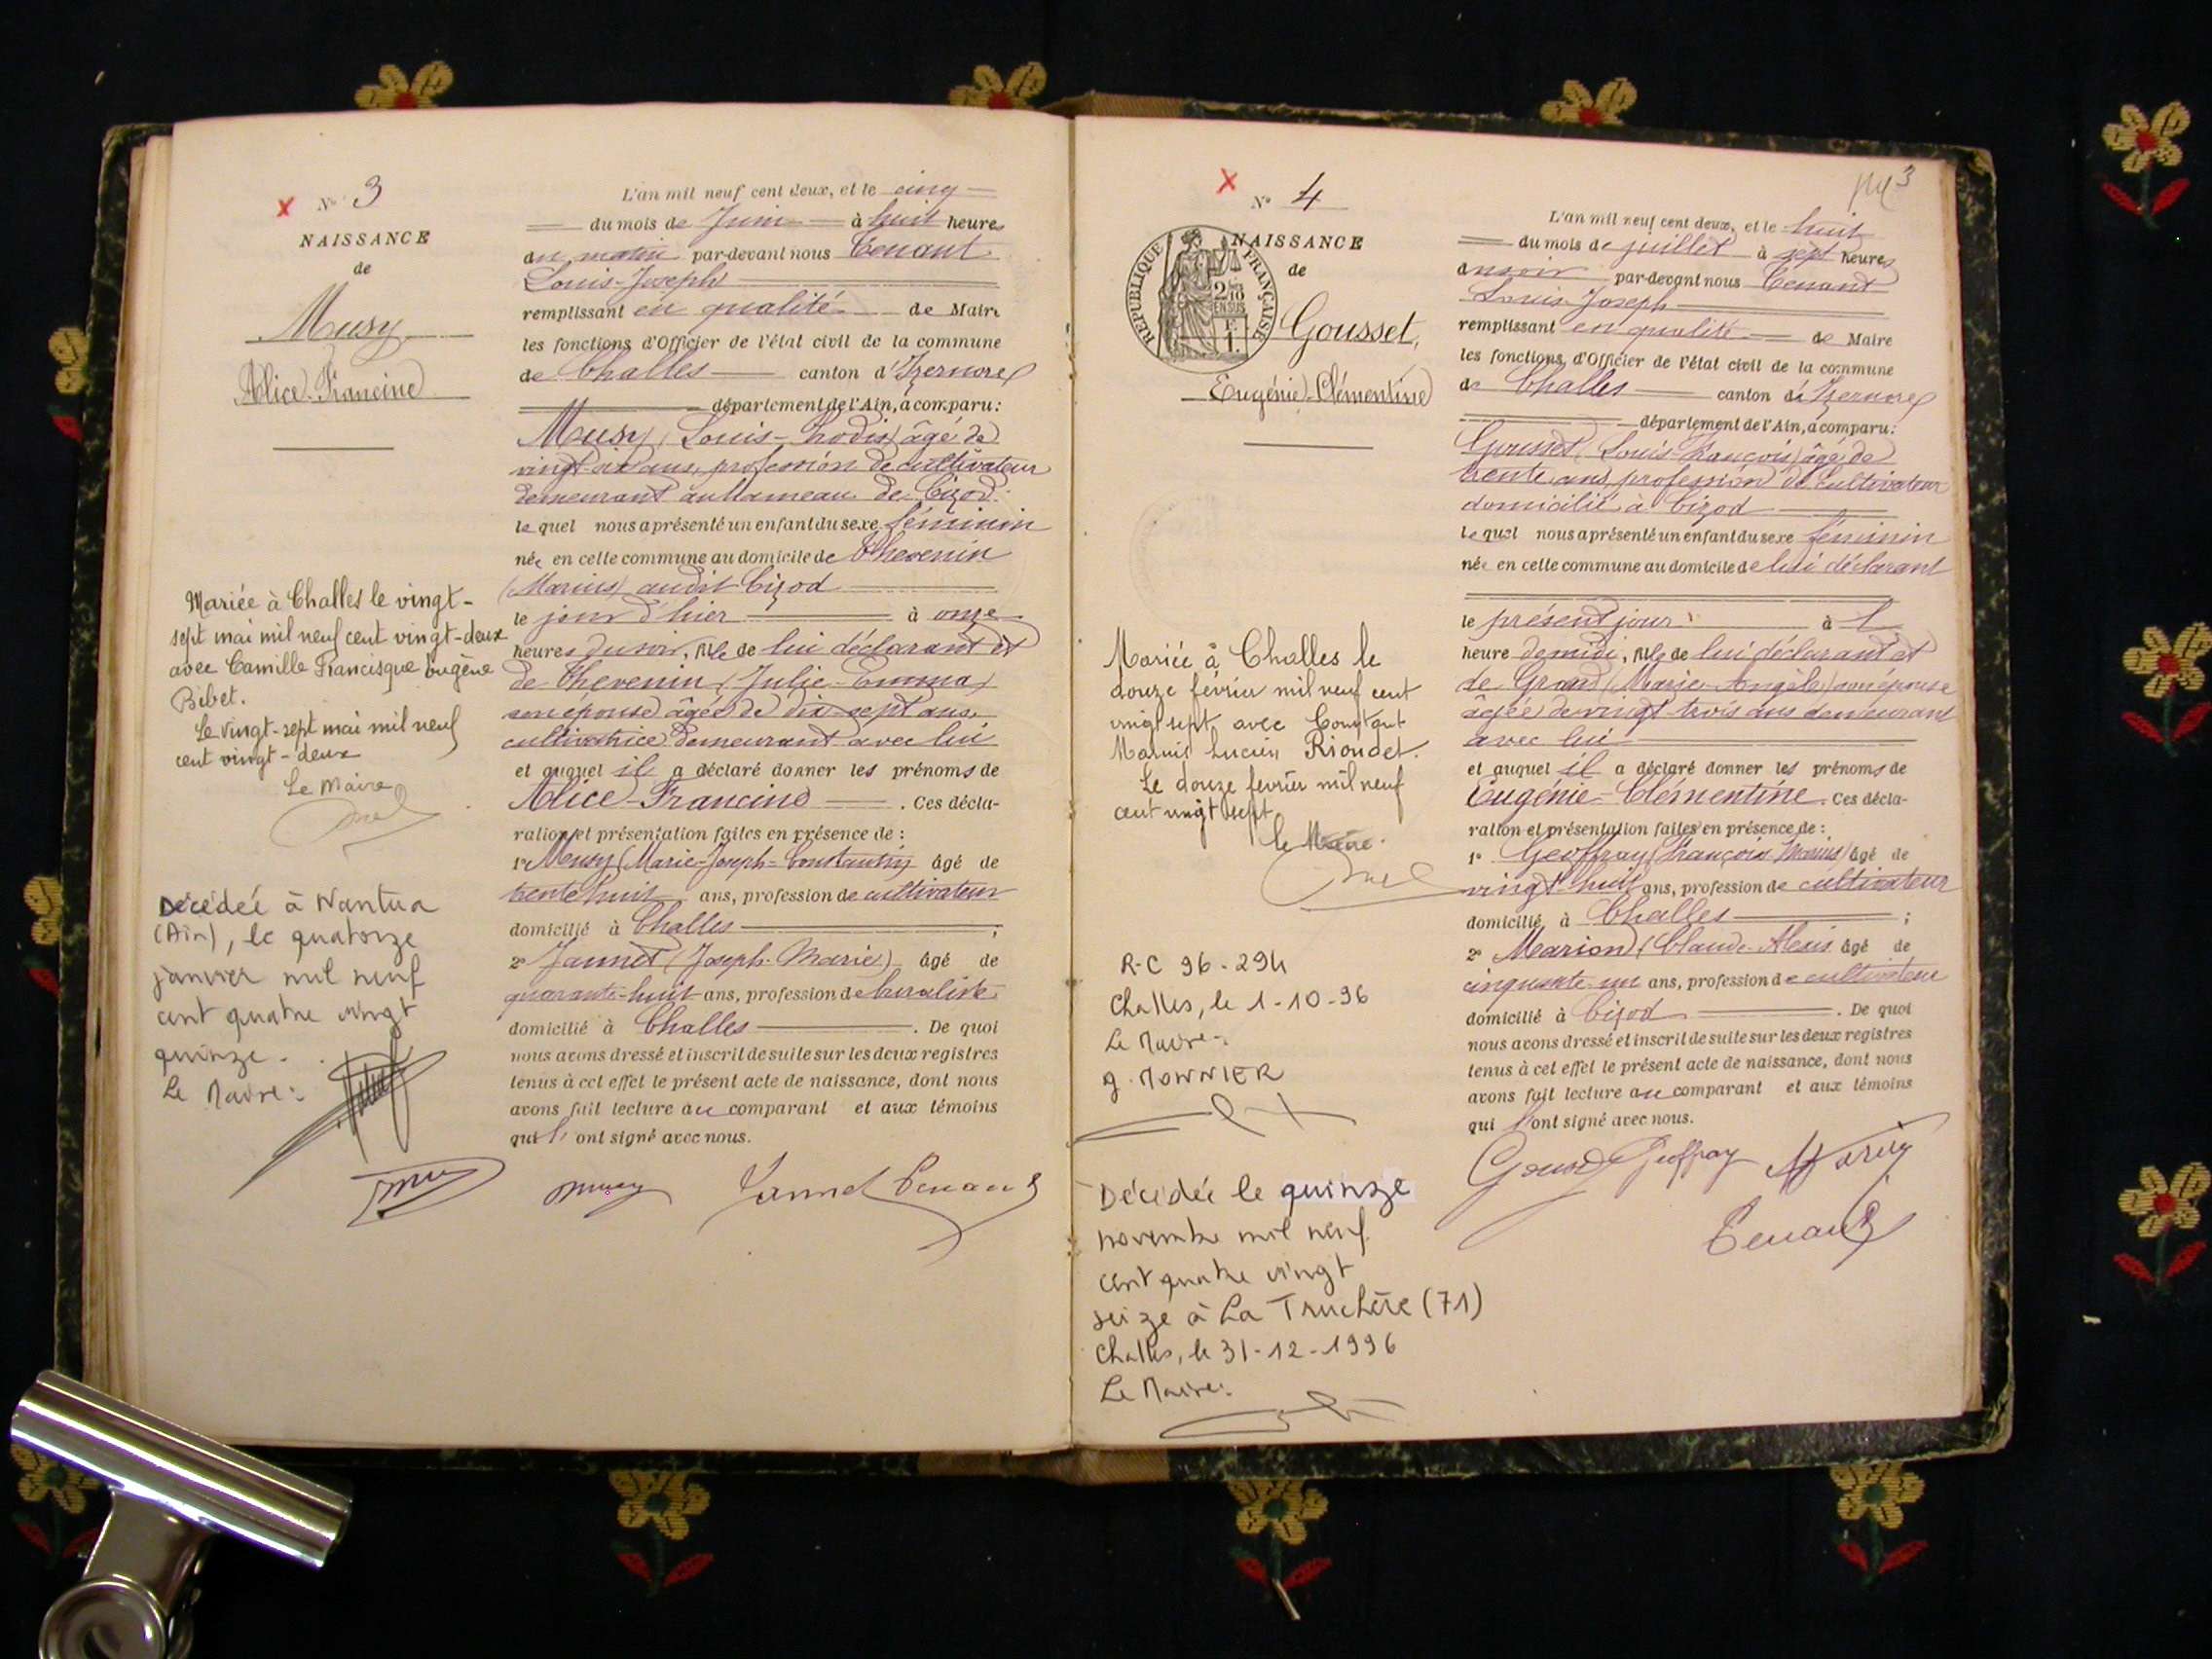 N° 3
NAISSANCE
de
Musy
Alice-Francine
Mariée à Challes le vingt-
sept mai mil neuf cent vingt-deux
avec Camille Francisque Eugène
Bibet.
Le vingt-sept mai mil neuf
cent vingt-deux
Le Maire
Décédée à Nantua
(Ain), le quatorze
janvier mil neuf
cent quatre vingt
quinze.
Le Maire:
L'an mil neuf cent deux, et le cinq
du mois de Juin à huit heures
du matin par-devant nous Tenant
Louis-Joseph
remplissant en qualité de Maire
les fonctions d'Officier de l'état civil de la commune
de Challes canton d'Izernore
département de l'Ain, a comparu:
Musy (Louis- âgé de
vingt ans, profession de cultivateur
demeurant au hameau de Cizod
lequel nous a présenté un enfant du sexe féminin
née en cette commune au domicile de Thevenin
(Marius) audit Cizod
le jour d'hier à onze
heures du soir, fille de lui déclarant et
de Thevenin (Julie-Emma)
son épouse âgée de dix-sept ans
cultivatrice demeurant avec lui
et auquel il a déclaré donner les prénoms de
Alice-Francine . Ces décla-
ration et présentation faites en présence de :
1° Musy (Marie-Joseph-Constantin) âgé de
trente huit ans, profession de cultivateur
domicilié à Challes ;
2° Jannet (Joseph-Marie) âgé de
quarante-huit ans, profession de buraliste
domicilié à Challes . De quoi
nous avons dressé et inscrit de suite sur les deux registres
tenus à cet effet le présent acte de naissance, dont nous
avons fait lecture au comparant et aux témoins
qui l'ont signé avec nous.
musy Jannet Tenant
3
N° 4
NAISSANCE
de
RÉPUBLIQUE FRANÇAISE
2/10
EN SUS
1F.
Gousset,
Eugénie-Clémentine
Mariée à Challes le
douze février mil neuf cent
vingt sept avec Constant
Marius Lucien Rioudet.
Le douze février mil neuf
cent vingt sept
le Maire.
R-C 96-294
Challes, le 1-10-96
Le Maire-
g. MONNIER
Décédée le quinze
novembre mil neuf
cent quatre vingt
seize à La Truchère (71)
Challes, le 31-12-1996
Le Maire:
L'an mil neuf cent deux, et le huit
du mois de juillet à sept heures
du soir par-devant nous Tenant
Louis Joseph
remplissant en qualité de Maire
les fonctions d'Officier de l'état civil de la commune
de Challes canton d'Izernore
département de l'Ain, a comparu:
Gousset (Louis-François) âgé de
trente ans, profession de cultivateur
domicilié à Cizod
lequel nous a présenté un enfant du sexe féminin
née en cette commune au domicile de lui déclarant
le présent jour à l
heure de midi, fille de lui déclarant et
de Grand (Marie-Angèle) son épouse
âgée de vingt trois ans demeurant
avec lui
et auquel il a déclaré donner les prénoms de
Eugénie-Clémentine. Ces décla-
ration et présentation faites en présence de :
1° Geoffray (François Marius) âgé de
vingt huit ans, profession de cultivateur
domicilié à Challes ;
2° Marion (Claude-Alexis âgé de
cinquante un ans, profession de cultivateur
domicilié à Cizod . De quoi
nous avons dressé et inscrit de suite sur les deux registres
tenus à cet effet le présent acte de naissance, dont nous
avons fait lecture au comparant et aux témoins
qui l'ont signé avec nous.
Gousset Geoffray Marion
Tenant